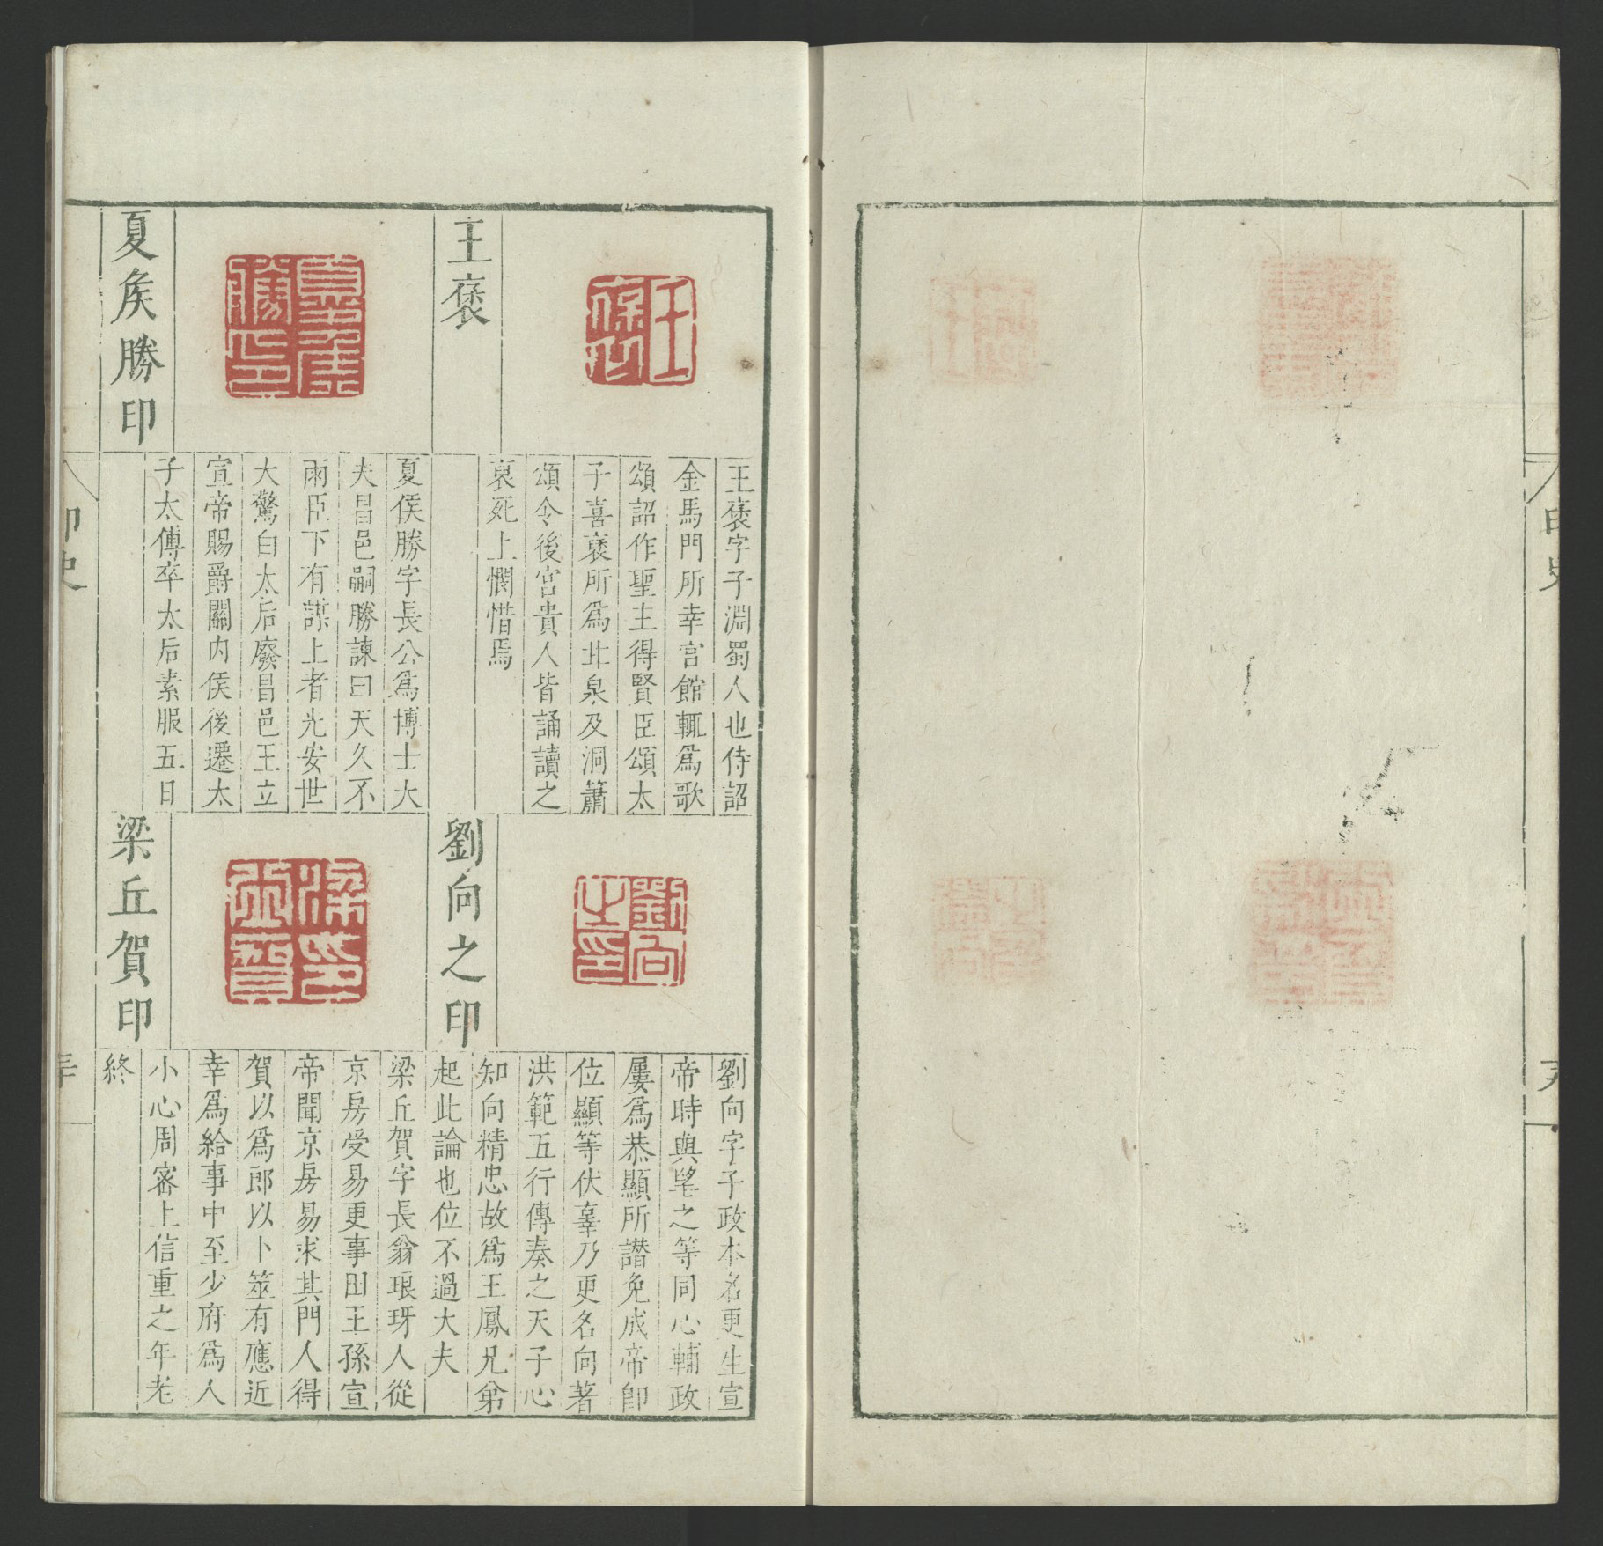 王褒
王褒字子淵蜀人也侍詔
金馬門所幸宮館輒為歌
頌詔作聖主得賢臣頌太
子喜褒所為甘泉及洞簫
頌令後宮貴人皆誦讀之
哀死上憫惜焉
夏矦勝印
夏侯勝字長公為博士大
夫昌邑嗣勝諫曰天久不
雨臣下有謀上者光安世
大驚白太后廢昌邑王立
宣帝賜爵關內侯後遷太
子太傅卒太后素服五日
劉向之印
劉向字子政本名更生宣
帝時與望之等同心輔政
屢為恭顯所譖免成帝即
位顯等伏辜乃更名向著
洪範五行傳奏之天子心
知向精忠故為王鳳兄弟
起此論也位不過大夫
梁丘賀印
梁丘賀字長翁琅玡人從
京房受易更事田王孫宣
帝聞京房易求其門人得
賀以為郎以卜筮有應近
幸為給事中至少府為人
小心周密上信重之年老
終
印史